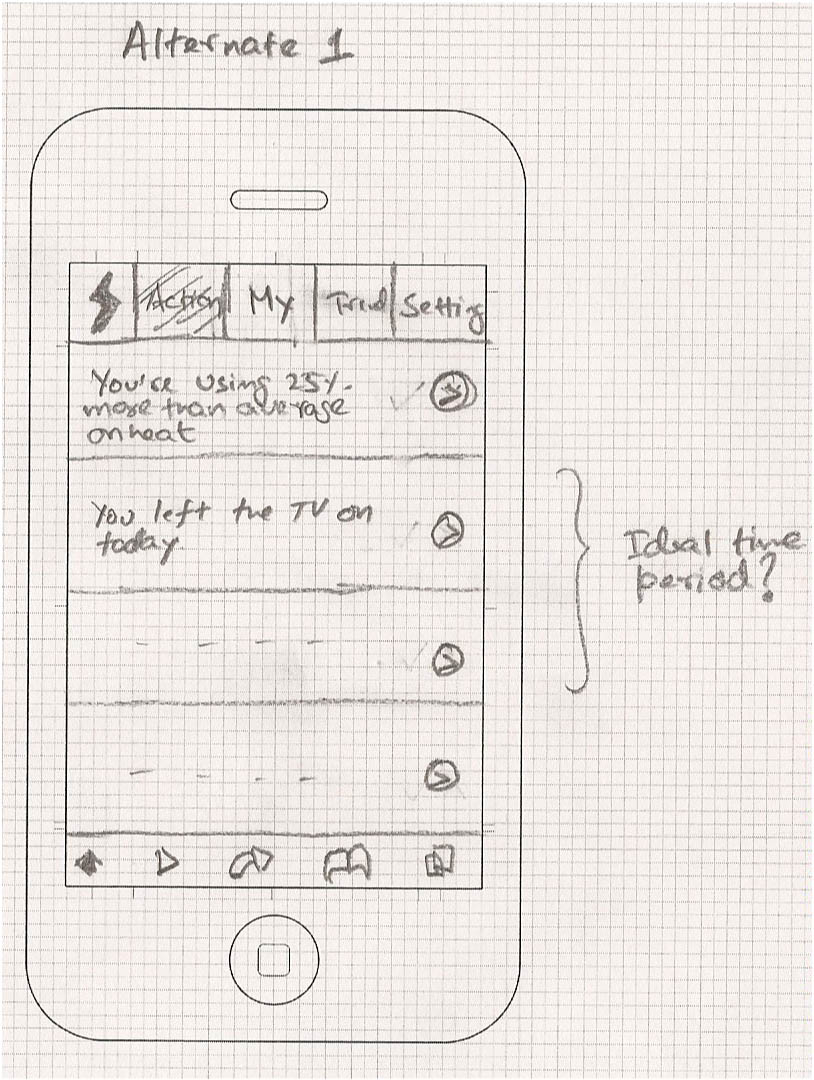 Alternate 1
Action My Tried Setting
You're using 25%
more than average
on heat
You left the TV on
today.
Ideal time
period?